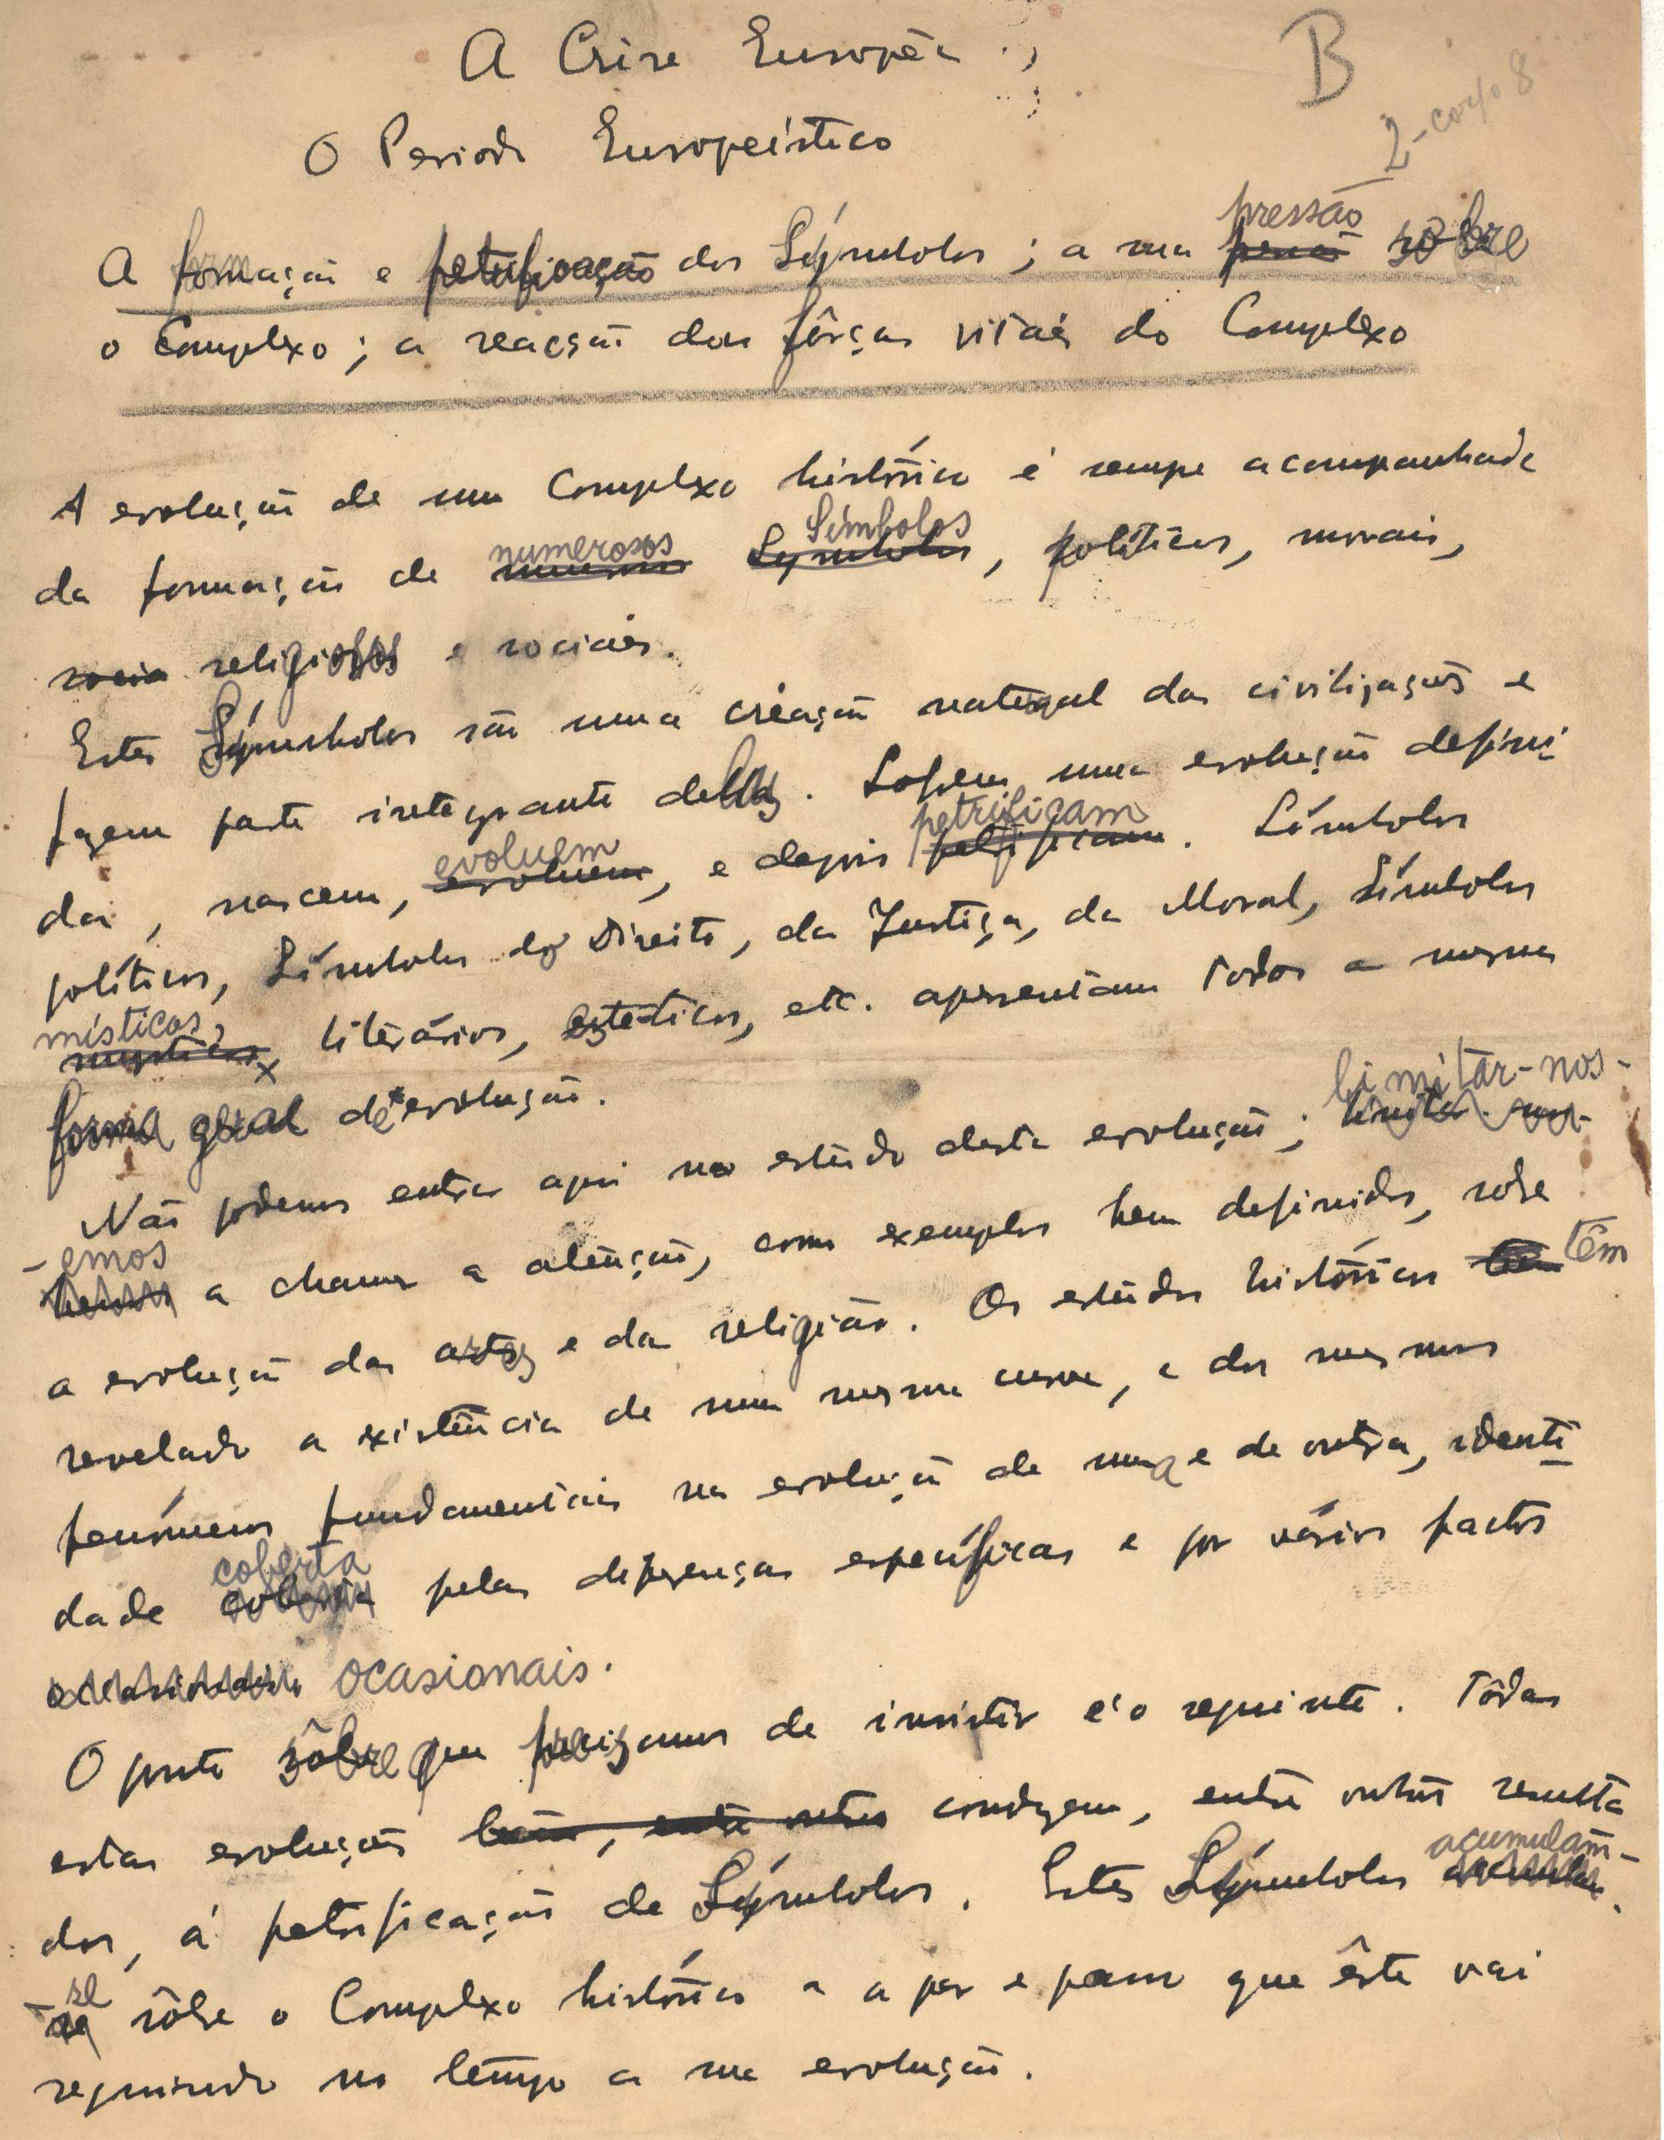 A Crise Européa
B
2-corpo 8
O Periodo Europeístico
pressão
A formação e petrificação dos Símbolos ; a sua pressão sôbre
o Complexo ; a reacção das fôrças vitáes do Complexo
A evolução de um Complexo histórico é sempre acompanhada
numerosos Símbolos
da formação de numerosos Symbolos, políticos, morais,
socia religiosos e sociáes.
Estes Símbolos são uma criação natural das civilizações e
fazem parte integrante delas. Sofrem uma evolução defini-
evoluem petrificam
da, nascem, evoluem, e depois petrificam. Símbolos
políticos, Símbolos do Direito, da Justiça, da Moral, Símbolos
místicos,
mysticos, literários, estéticos, etc. apresentam todos a mesma
forma geral de evolução.
limitar-nos-
Não podemos entrar aqui no estudo desta evolução ; limitar-nos-
-emos
hemos a chamar a atenção, como exemplos bem definidos, sobre
a evolução das artes e da religião. Os estudos históricos tem têm
revelado a existência de uma mesma curva, e dos mesmos
fenómenos fundamentais na evolução de uma e de outra, identi-
coberta
dade coberta pelas diferenças específicas e por vários factos
occasionais ocasionais.
O ponto sôbre que precisamos de insistir é o seguinte. Tôdas
estas evoluções levam, entre outros conduzem, entre outros resulta
acumulam-
dos, á petrificação de Símbolos. Estes Símbolos acumulam
-se
se sôbre o Complexo histórico a a par e passo que êste vai
seguindo no tempo a sua evolução.